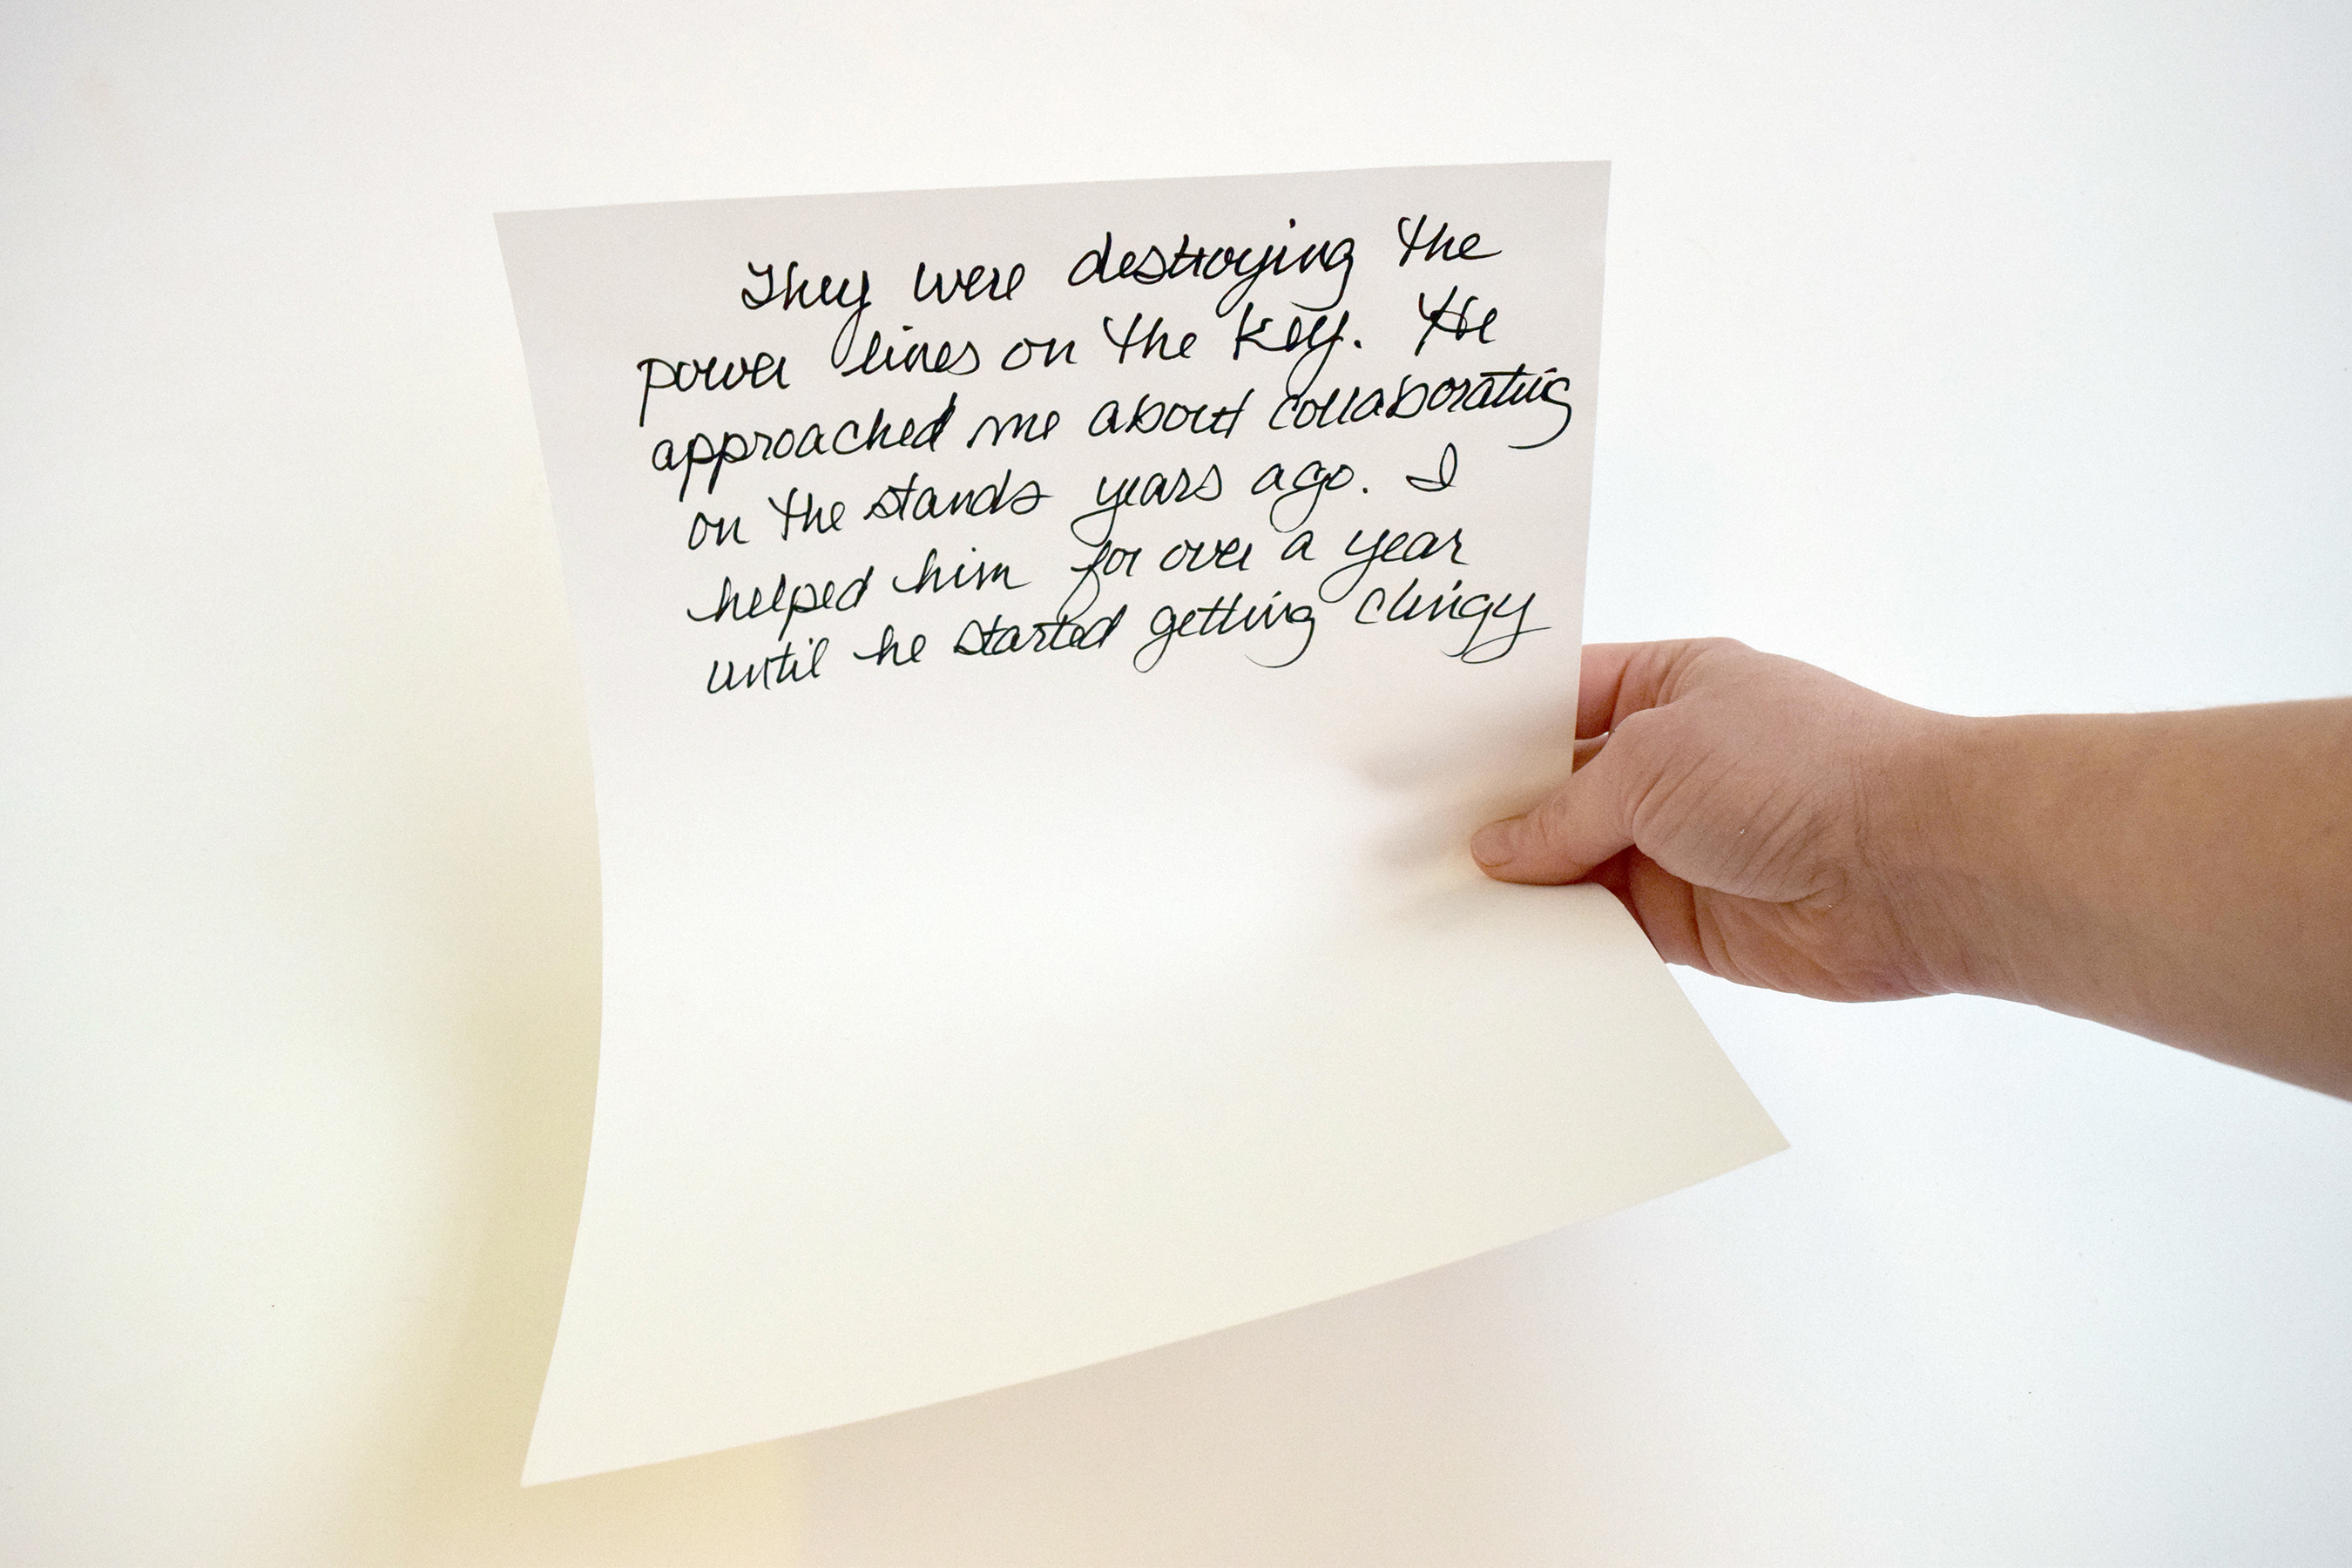 They were destroying the
power lines on the Key. He
approached me about collaborating
on the stands years ago. I
helped him for over a year
until he started getting clingy